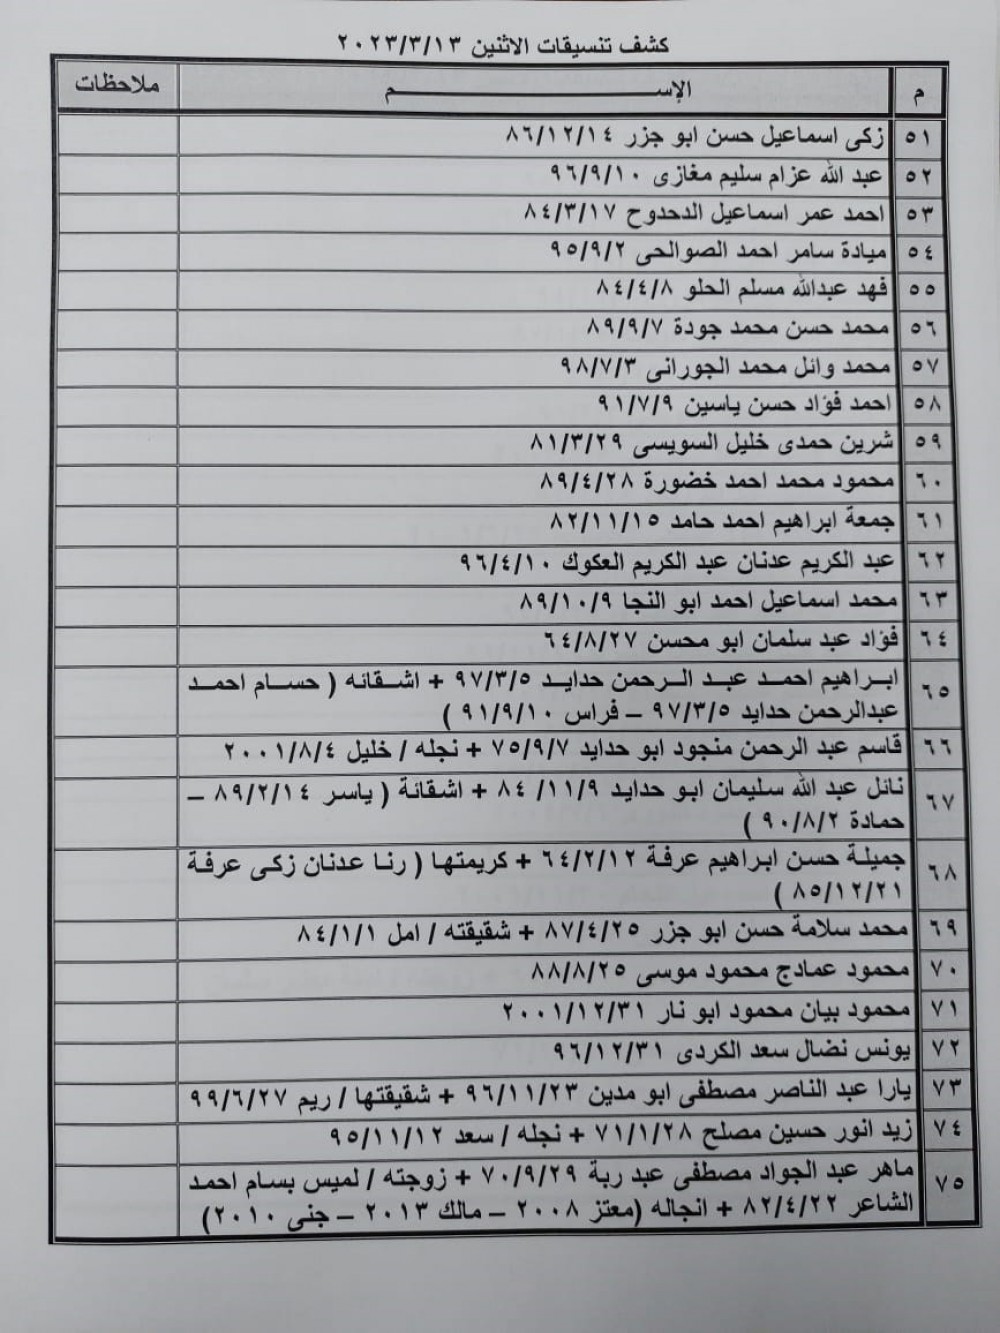 كشف تنسيقات الاثنين ٢٠٢٣/٣/١٣
م الإســـم ملاحظات
٥١ زكى اسماعيل حسن ابو جزر ٨٦/١٢/١٤
٥٢ عبد الله عزام سليم مغازى ٩٦/٩/١٠
٥٣ احمد عمر اسماعيل الدحدوح ٨٤/٣/١٧
٥٤ ميادة سامر احمد الصوالحى ٩٥/٩/٢
٥٥ فهد عبدالله مسلم الحلو ٨٤/٤/٨
٥٦ محمد حسن محمد جودة ٨٩/٩/٧
٥٧ محمد وائل محمد الجورانى ٩٨/٧/٣
٥٨ احمد فؤاد حسن ياسين ٩١/٧/٩
٥٩ شرين حمدى خليل السويسى ٨١/٣/٢٩
٦٠ محمود محمد احمد خضورة ٨٩/٤/٢٨
٦١ جمعة ابراهيم احمد حامد ٨٢/١١/١٥
٦٢ عبد الكريم عدنان عبد الكريم العكوك ٩٦/٤/١٠
٦٣ محمد اسماعيل احمد ابو النجا ٨٩/١٠/٩
٦٤ فؤاد عبد سلمان ابو محسن ٦٤/٨/٢٧
٦٥ ابراهيم احمد عبد الرحمن حدايد ٩٧/٣/٥ + اشقائه ( حسام احمد
عبدالرحمن حدايد ٩٧/٣/٥ – فراس ٩١/٩/١٠ )
٦٦ قاسم عبد الرحمن منجود ابو حدايد ٧٥/٩/٧ + نجله / خليل ٢٠٠١/٨/٤
٦٧ نائل عبد الله سليمان ابو حدايد ٨٤ /١١/٩ + اشقائة ( ياسر ٨٩/٢/١٤ –
حمادة ٩٠/٨/٢ )
٦٨ جميلة حسن ابراهيم عرفة ٦٤/٢/١٢ + كريمتها ( رنا عدنان زكى عرفة
٨٥/١٢/٢١ )
٦٩ محمد سلامة حسن ابو جزر ٨٧/٤/٢٥ + شقيقته / امل ٨٤/١/١
٧٠ محمود عمادج محمود موسى ٨٨/٨/٢٥
٧١ محمود بيان محمود ابو نار ٢٠٠١/١٢/٣١
٧٢ يونس نضال سعد الكردى ٩٦/١٢/٣١
٧٣ يارا عبد الناصر مصطفى ابو مدين ٩٦/١١/٢٣ + شقيقتها / ريم ٩٩/٦/٢٧
٧٤ زيد انور حسين مصلح ٧١/١/٢٨ + نجله / سعد ٩٥/١١/١٢
٧٥ ماهر عبد الجواد مصطفى عبد ربة ٧٠/٩/٢٩ + زوجته / لميس بسام احمد
الشاعر ٨٢/٤/٢٢ + انجاله (معتز ٢٠٠٨ – مالك ٢٠١٣ – جنى ٢٠١٠)